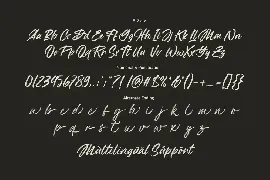 Aa Bb Cc Dd Ee Ff Gg Hh Ii Jj Kk Ll Mm Nn
Oo Pp Qq Rr Ss Tt Uu Vv Ww Xx Yy Zz
0123456789
Alternate Ending
a b c d e f g h i j k l m n o
p q r s t u v w x y z
Multilingual Support